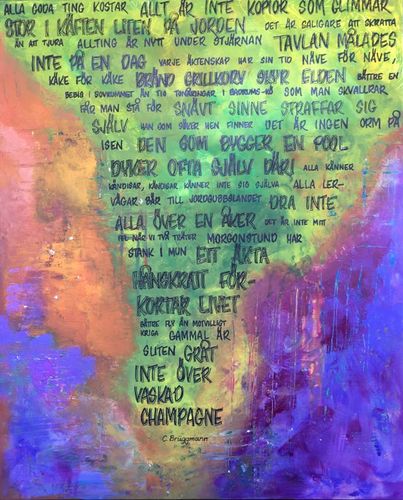 ALLA GODA TING KOSTAR ALLT ÄR INTE KOPIOR SOM GLIMMAR
STOR I KÄFTEN LITEN PÅ JORDEN DET ÄR SALIGARE ATT SKRATTA
ÄN ATT TJURA ALLTING ÄR NYTT UNDER STJÄRNAN TAVLAN MÅLADES
INTE PÅ EN DAG VARJE ÄKTENSKAP HAR SIN TID NÄVE FÖR NÄVE,
KÄKE FÖR KÄKE BRÄND GRILLKORV SKYR ELDEN BÄTTRE EN
BEBIS I SOVRUMMET ÄN TIO TONÅRINGAR I BADRUMS-KÖ SOM MAN SKVALLRAR
FÅR MAN STÅ FÖR SNÄVT SINNE STRAFFAR SIG
SJÄLV HAN SOM SÖKER HEN FINNER DET ÄR INGEN ORM PÅ
ISEN DEN SOM BYGGER EN POOL
DYKER OFTA SJÄLV DÄRI ALLA KÄNNER
KÄNDISAR, KÄNDISAR KÄNNER INTE SIG SJÄLVA ALLA LER-
VÄGAR BÄR TILL JORDGUBBSLANDET DRA INTE
ALLA ÖVER EN ÅKER DET ÄR INTE MITT
FEL NÄR VI TVÅ TRÄTER MORGONSTUND HAR
STANK I MUN ETT ÄKTA
HÅNGSKRATT FÖR-
KORTAR LIVET
BÄTTRE FLY ÄN MOTVILLIGT
KRIGA GAMMAL ÄR
SLITEN GRÅT
INTE ÖVER
VASKAD
CHAMPAGNE
C. Brüggmann